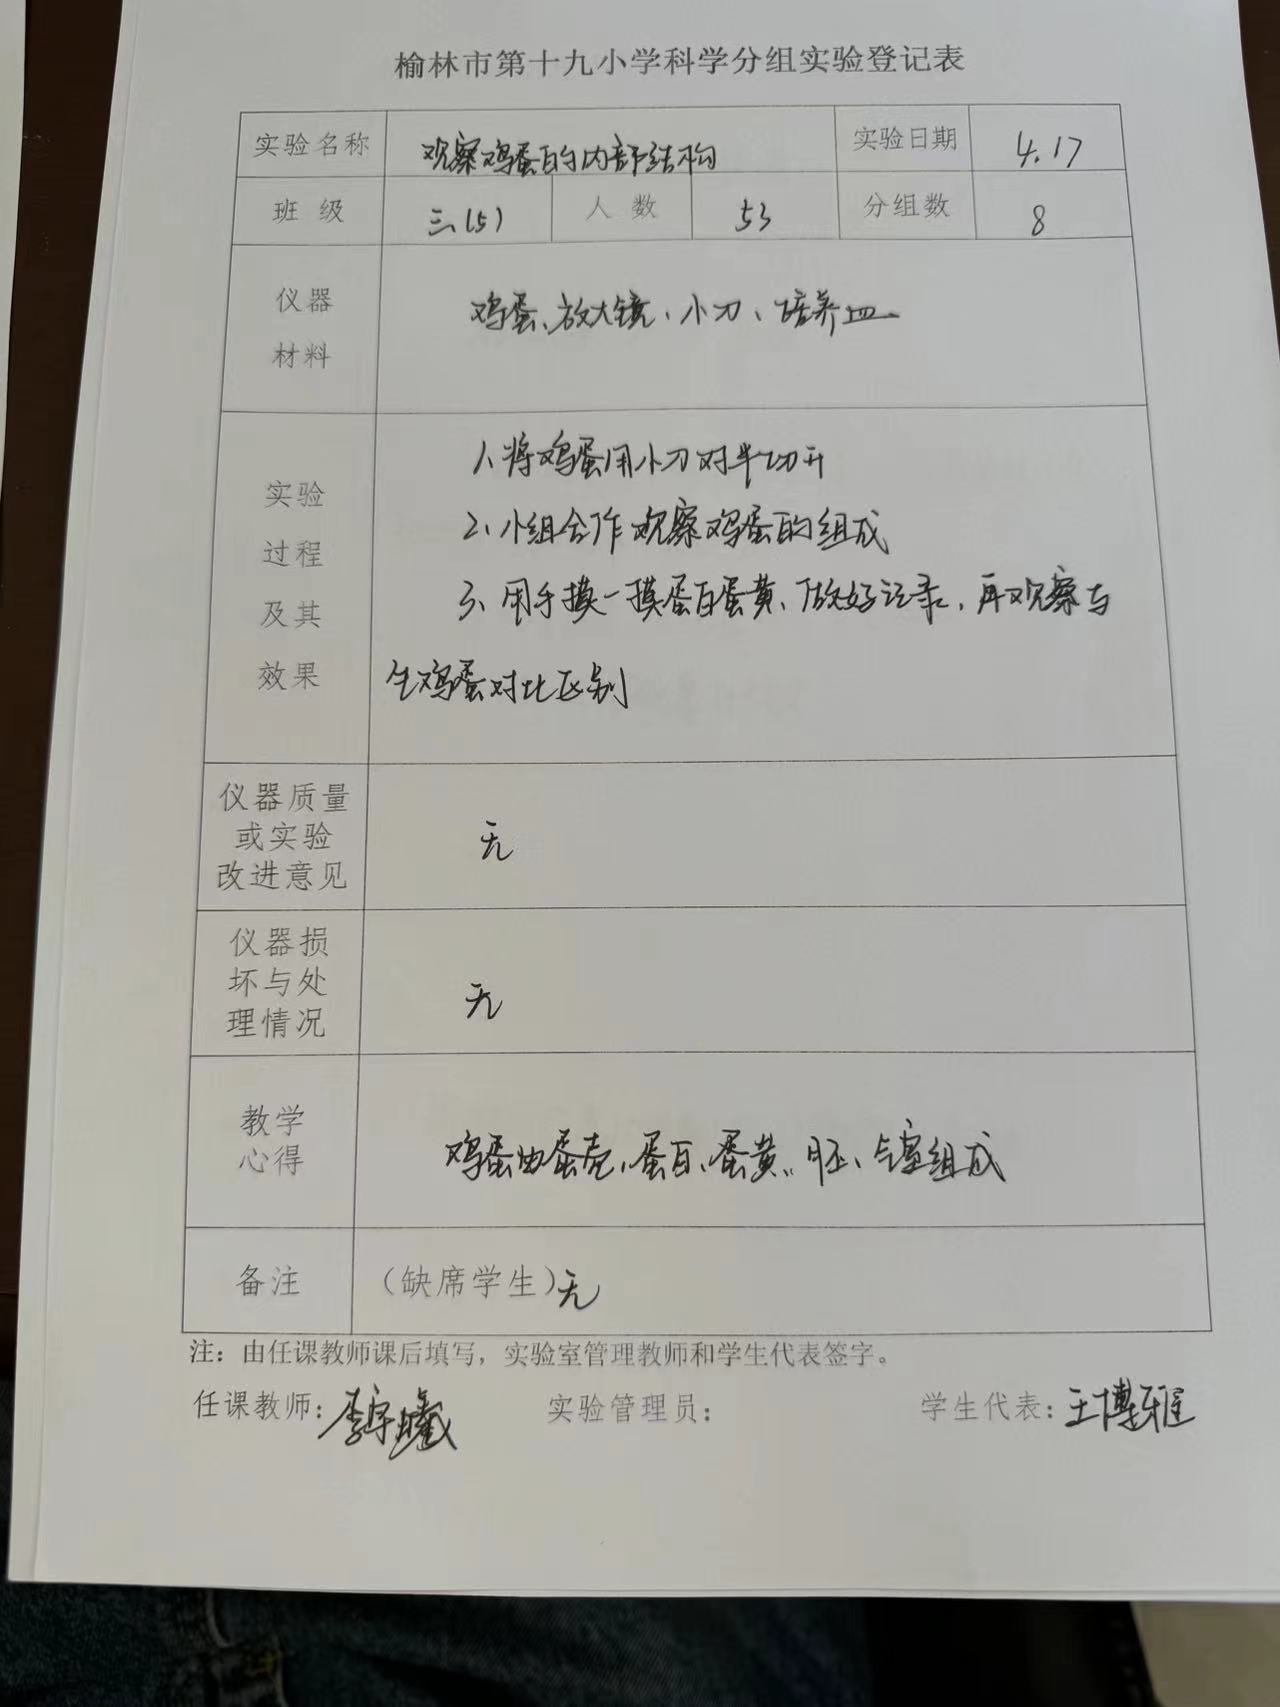 榆林市第十九小学科学分组实验登记表
实验名称 观察鸡蛋的内部结构 实验日期 4.17
班 级 三(5) 人 数 53 分组数 8
仪器
材料
鸡蛋、放大镜、小刀、培养皿
实验
过程
及其
效果
1、将鸡蛋用小刀对半切开
2、小组合作观察鸡蛋的组成
3、用手摸一摸蛋白蛋黄、做好记录,再观察与
生鸡蛋对比区别
仪器质量
或实验
改进意见
无
仪器损
坏与处
理情况
无
教学
心得
鸡蛋由蛋壳、蛋白、蛋黄、胚、气室组成
备注 (缺席学生)无
注:由任课教师课后填写,实验室管理教师和学生代表签字。
任课教师:李宇曦 实验管理员: 学生代表:王博雅